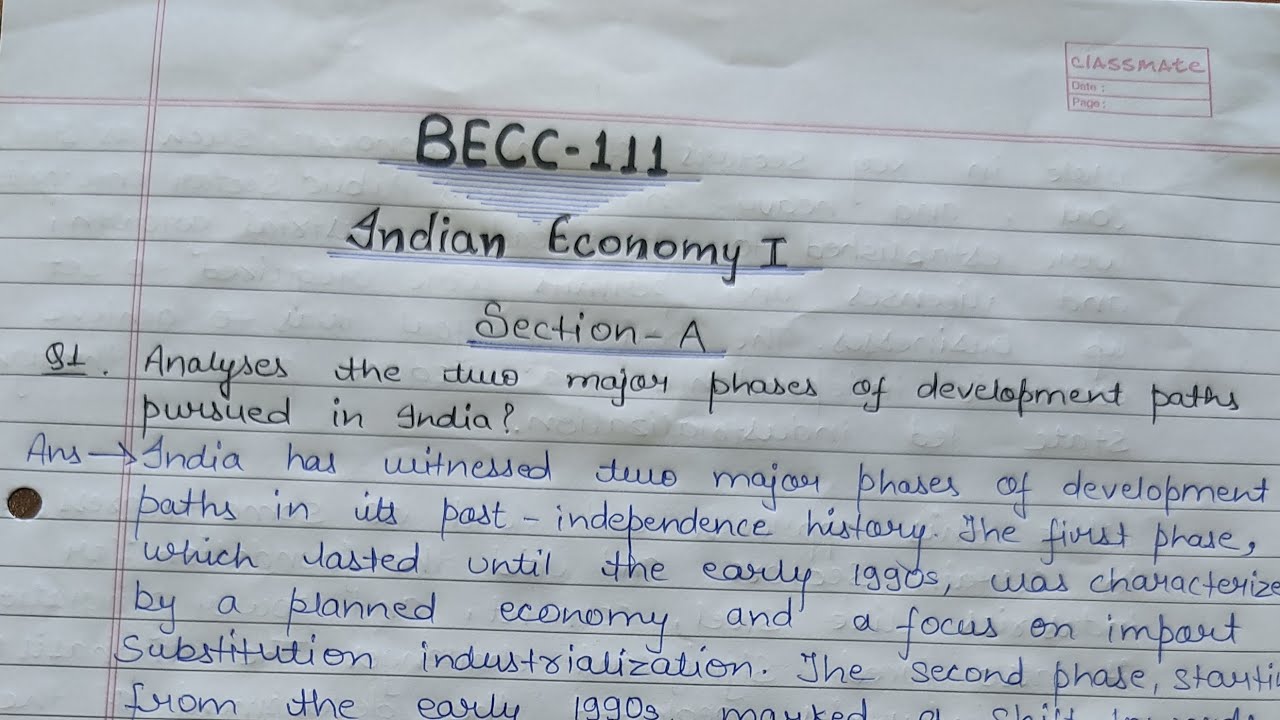 classmate
Date :
Page :
BECC-111
Indian Economy I
Section-A
Q1. Analyses the two major phases of development paths
pursued in India?
Ans → India has witnessed two major phases of development
paths in its post-independence history. The first phase,
which lasted until the early 1990s, was characterize
by a planned economy and a focus on import
Substitution industrialization. The second phase, starti
from the early 1990s, marked a shift